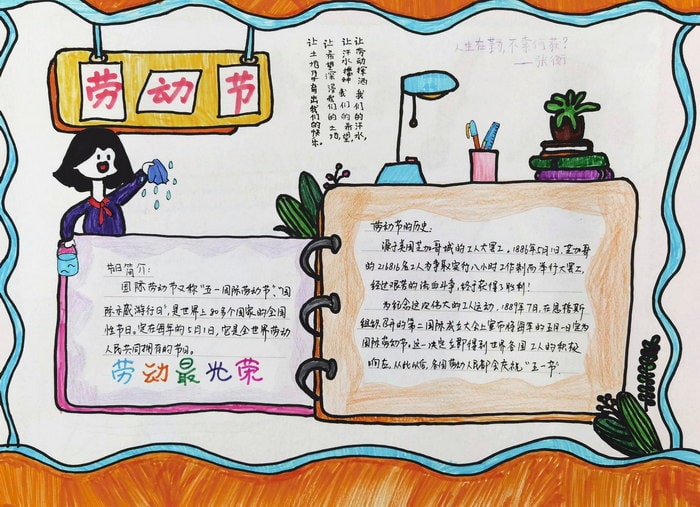 劳动节
让劳动挥洒我们的汗水,
让汗水播种我们的希望,
让希望深浸我们的土地,
让土地孕育出我们的快乐。
人生在勤,不索何获?
——张衡
节日简介:
国际劳动节又称“五一国际劳动节”、“国
际示威游行日”,是世界上80多个国家的全国
性节日。定在每年的5月1日,它是全世界劳动
人民共同拥有的节日。
劳动最光荣
劳动节的历史:
源于美国芝加哥城的工人大罢工。1886年5月1日,芝加哥
的216816名工人为争取实行八小时工作制而举行大罢工,
经过艰苦的流血斗争,终于获得了胜利!
为纪念这次伟大的工人运动,1889年7月,在恩格斯
组织召开的第二国际成立大会上宣布将每年的五月一日定为
国际劳动节。这一决定立即得到世界各国工人的积极
响应。从此以后,各国劳动人民都会庆祝“五一节”